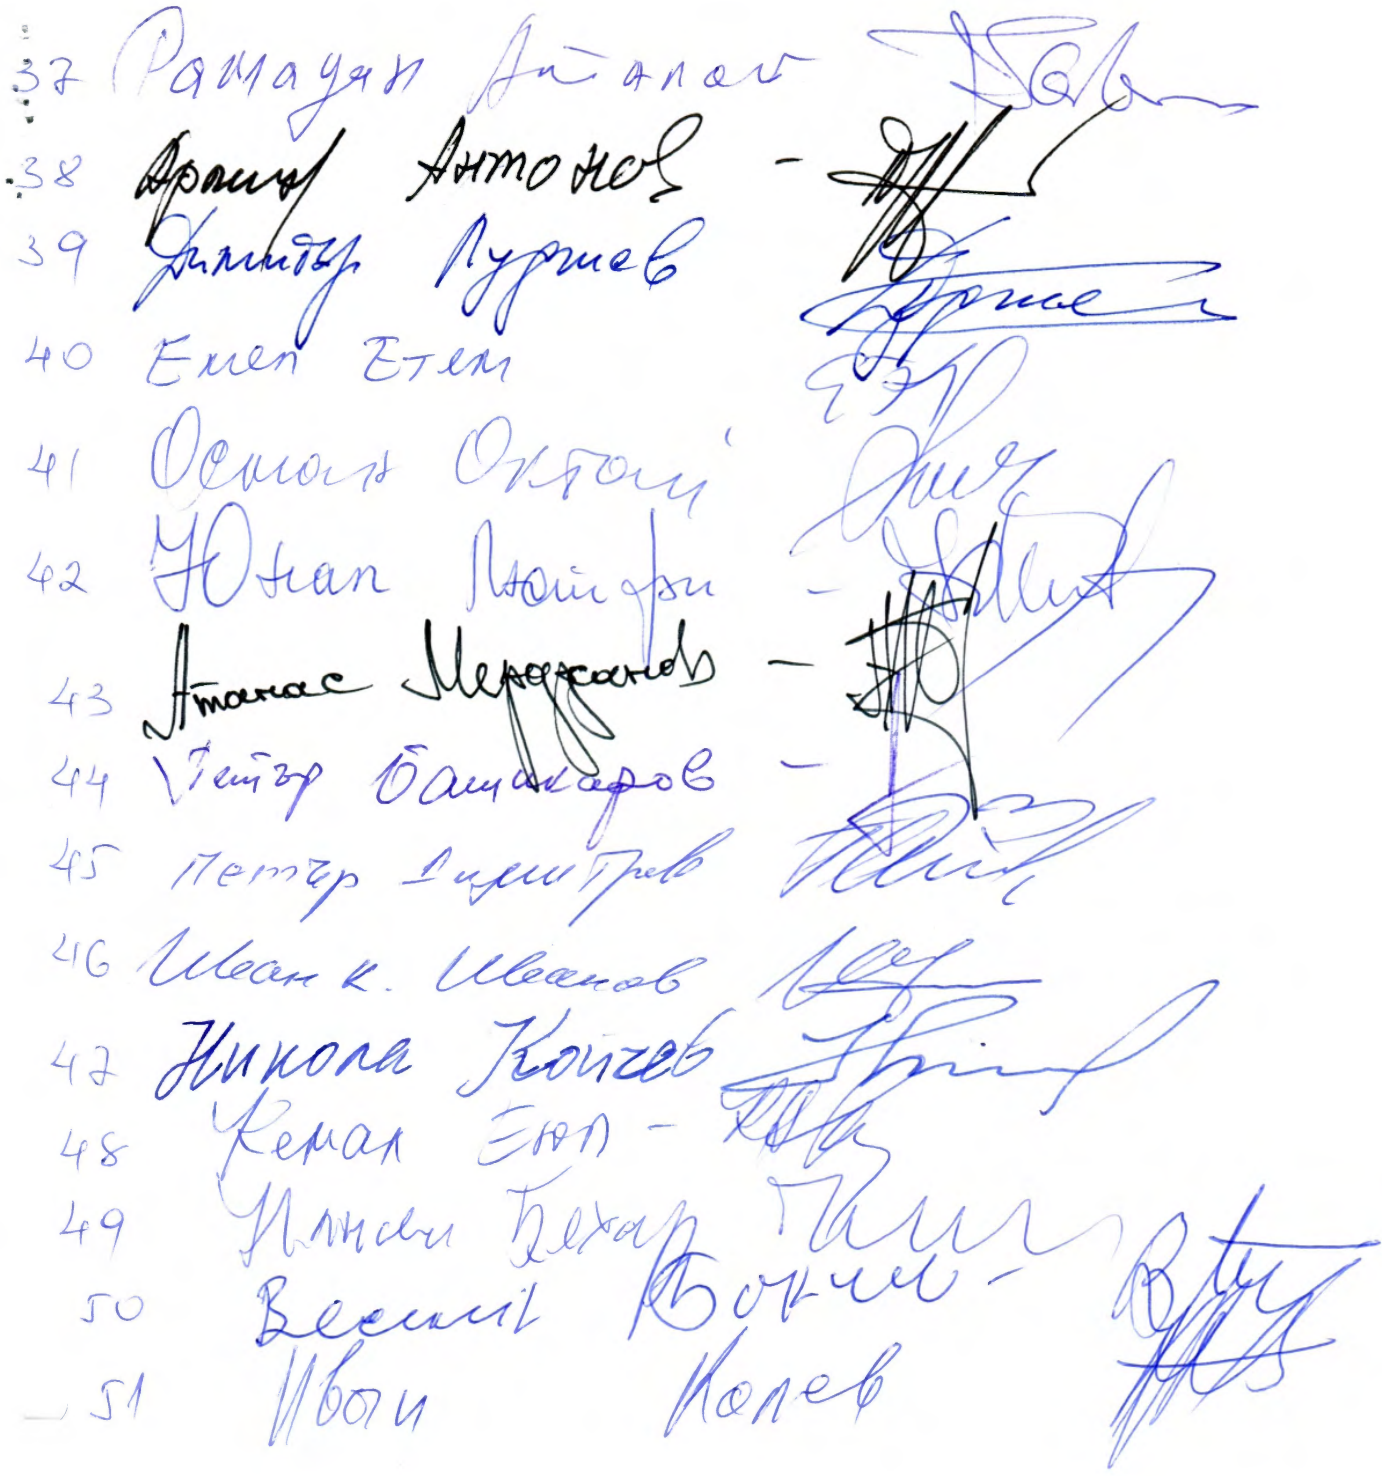 37 Рамадан Аталай
38 Арман Антонов -
39 Димитър Луджев
40 Емел Етем
41 Осман Октай
42 Юнал Лютфи -
43 Атанас Мерджанов -
44 Петър Башикаров -
45 Петър Димитров
46 Иван К. Иванов
47 Никола Койчев
48 Кемал Еюп -
49 Бехар
50 Веселин -
51 Иван Колев